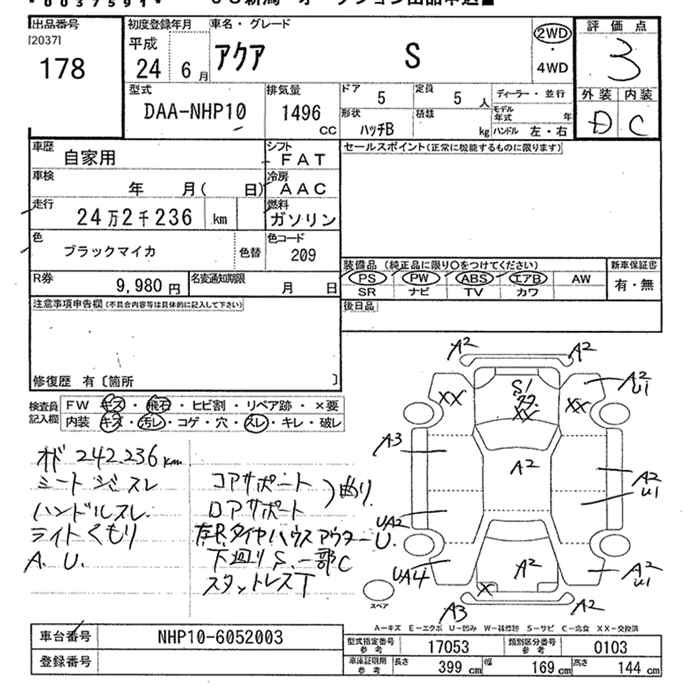 *0037591*
出品番号
[2037]
178
初度登録年月
平成
24 6月
車名・グレード
アクア S
2WD
・
4WD
評価点
3
外装 内装
D C
型式
DAA-NHP10
排気量
1496 cc
ドア 5
定員 5人
形状
ハッチB
積載 kg
ディーラー・並行
モデル年式 年
ハンドル 左・右
車歴
自家用
シフト
FAT
車検 年 月( 日)
冷房
AAC
走行
24万2千236 km
燃料
ガソリン
色
ブラックマイカ
色替
色コード
209
R券 9,980円
名変通知期限 月 日
セールスポイント(正常に機能するものに限ります)
装備品(純正品に限り○をつけてください)
PS PW ABS エアB AW
SR ナビ TV カワ
新車保証書
有・無
後日品
注意事項申告欄(不具合内容等は具体的に記入して下さい)
修復歴 有〔箇所 〕
検査員記入欄
FW キズ・飛石・ヒビ割・リペア跡・×要
内装 キズ・汚レ・コゲ・穴・スレ・キレ・破レ
オド 242,236km
シートジミスレ
ハンドルスレ
ライトくもり
A. U.
コアサポート
ロアサポート
)曲り
左R.タイヤハウスアウターU.
下廻りS.一部C
スタットレスT
A2 A2
XX S1 XX A2 U1
XX
A3 A2 A2 U1
UA2
UA4 A2 A2 U1
X
A3 A2
スペア
A-キズ E-エクボ U-凹み W-補修跡 S-サビ C-腐食 XX-交換済
車台番号 NHP10-6052003
登録番号
型式指定番号参考 17053
類別区分番号参考 0103
車庫証明用参考 長さ 399cm 幅 169cm 高さ 144cm